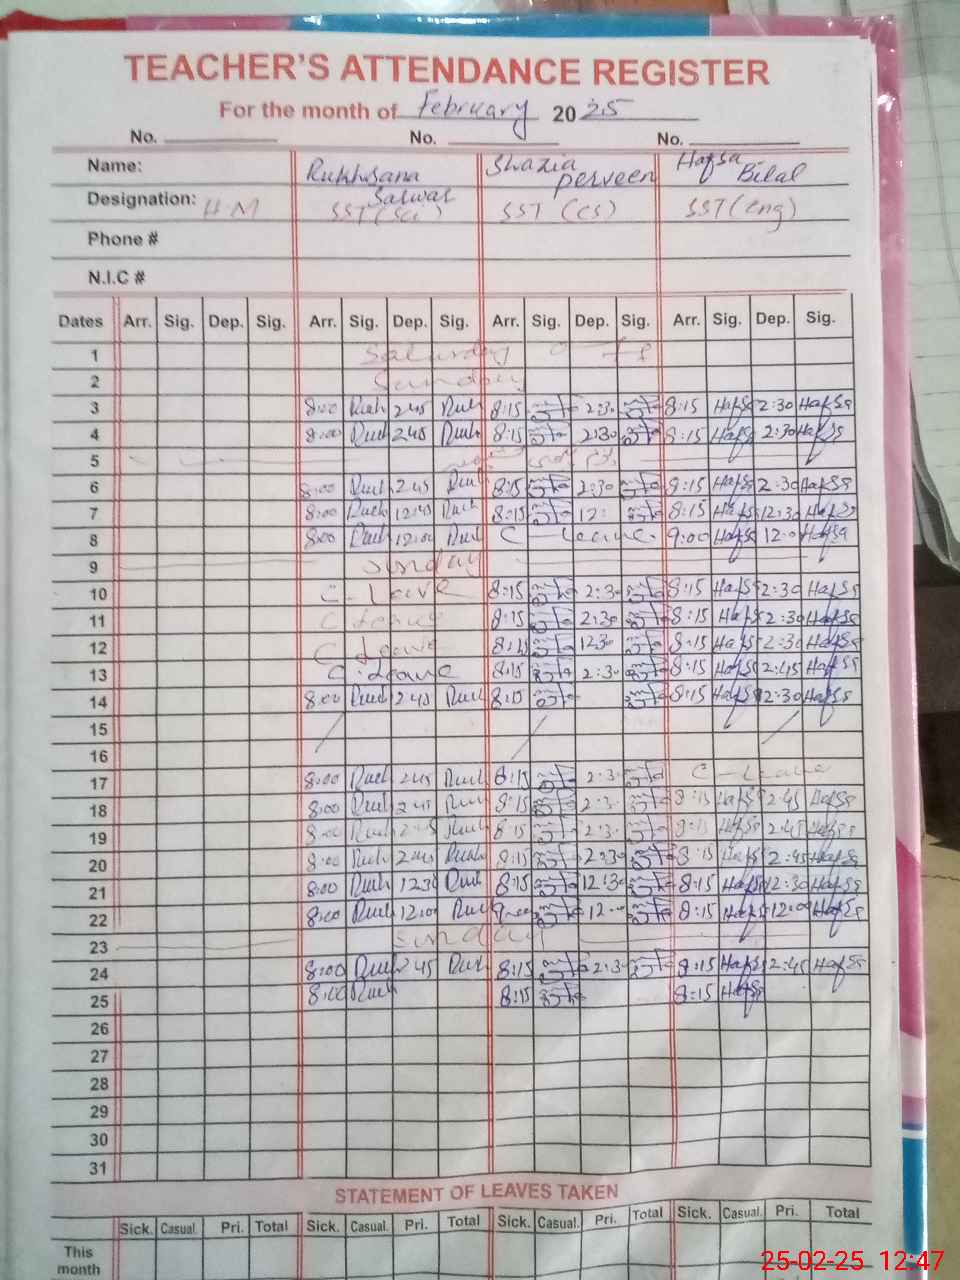 TEACHER'S ATTENDANCE REGISTER
For the month of February 2025
No. No. No.
Name: Rukhsana Sarwar Shazia Perveen Hafsa Bilal
Designation: H.M SST(Sci) SST (CS) SST (Eng)
Phone #
N.I.C #
Dates Arr. Sig. Dep. Sig. Arr. Sig. Dep. Sig. Arr. Sig. Dep. Sig. Arr. Sig. Dep. Sig.
1 Saturday off
2 Sunday
3 8:00 Rukh 2:45 Rukh 8:15 2:30 8:15 Hafsa 2:30 Hafsa
4 8:00 Rukh 2:45 Rukh 8:15 2:30 8:15 Hafsa 2:30 Hafsa
5
6 8:00 Rukh 2:45 Rukh 8:15 2:30 8:15 Hafsa 2:30 Hafsa
7 8:00 Rukh 12:45 Rukh 8:15 12: 8:15 Hafsa 12:30 Hafsa
8 8:00 Rukh 12:00 Rukh C - leave. 9:00 Hafsa 12:0 Hafsa
9 Sunday
10 C - Leave 8:15 2:30 8:15 Hafsa 2:30 Hafsa
11 C leave 8:15 2:30 8:15 Hafsa 2:30 Hafsa
12 C Leave 8:15 12:30 8:15 Hafsa 2:30 Hafsa
13 C. Leave 8:15 2:30 8:15 Hafsa 2:45 Hafsa
14 8:00 Rukh 2:45 Rukh 8:15 8:15 Hafsa 12:30 Hafsa
15
16
17 8:00 Rukh 2:45 Rukh 8:15 2:3 C - Leave
18 8:00 Rukh 2:45 Rukh 8:15 2:3 8:15 Hafsa 2:45 Hafsa
19 8:00 Rukh 2:45 Rukh 8:15 2:3 8:15 Hafsa 2:45 Hafsa
20 8:00 Rukh 2:45 Rukh 8:15 2:30 8:15 Hafsa 2:45 Hafsa
21 8:00 Rukh 12:30 Rukh 8:15 12:30 8:15 Hafsa 12:30 Hafsa
22 8:00 Rukh 12:00 Rukh 9:00 12:00 8:15 Hafsa 12:00 Hafsa
23 Sunday
24 8:00 Rukh 2:45 Rukh 8:15 2:3 8:15 Hafsa 2:45 Hafsa
25 8:00 Rukh 8:15 8:15 Hafsa
26
27
28
29
30
31
STATEMENT OF LEAVES TAKEN
Sick. Casual. Pri. Total Sick. Casual. Pri. Total Sick. Casual. Pri. Total Sick. Casual. Pri. Total
This month
25-02-25 12:47